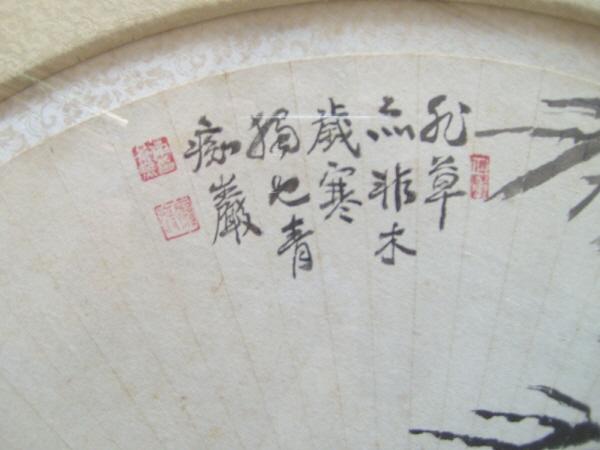 非草
亦非木
歲寒
獨也青
癡巖